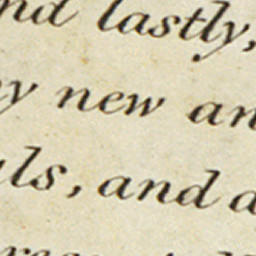 nd lastly,
y new an
ls, and a